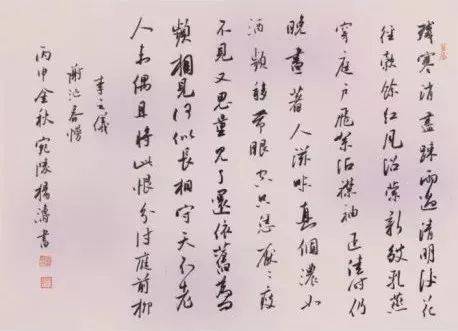 殘寒消盡踈雨過清明後花
徑斂餘紅風沼縈新皺乳燕
穿庭戶飛絮沾襟袖正佳時仍
晚晝著人滋味真個濃如
酒頻移帶眼空只恁厭々瘦
不見又思量見了還依舊為
頻相見何似長相守天不老
人未偶且將此恨分付庭前柳
李之儀
謝池春慢
丙申金秋宛陵楊濤書